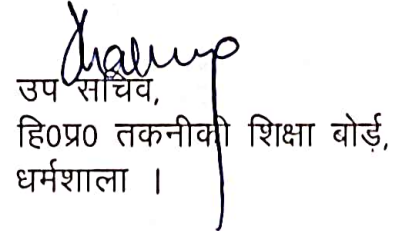 उप सचिव,
हि0प्र0 तकनीकी शिक्षा बोर्ड,
धर्मशाला ।